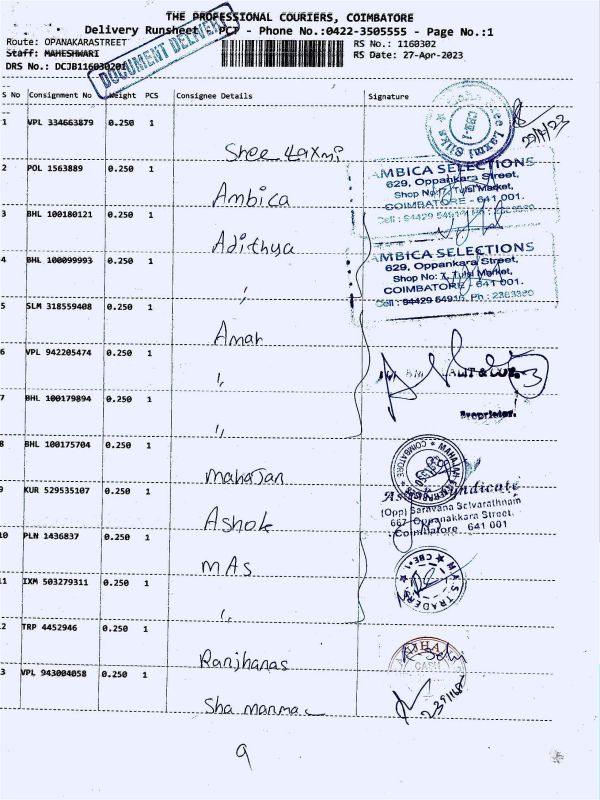 THE PROFESSIONAL COURIERS, COIMBATORE
Delivery Runsheet - PCT - Phone No.:0422-3505555 - Page No.:1
Route: OPANAKARASTREET RS No.: 1160302
Staff: MAHESHWARI RS Date: 27-Apr-2023
DRS No.: DCJB116030201
DOCUMENT DELIVERY
S No Consignment No Weight PCS Consignee Details Signature
1 VPL 334663879 0.250 1
Shee Laxmi
2 POL 1563889 0.250 1
Ambica
3 BHL 100180121 0.250 1
Adithya
4 BHL 100099993 0.250 1
"
5 SLM 318559408 0.250 1
Amar
6 VPL 942205474 0.250 1
"
7 BHL 100179894 0.250 1
"
8 BHL 100175704 0.250 1
mahajan
9 KUR 529535107 0.250 1
Ashok
10 PLN 1436837 0.250 1
MAS
11 IXM 503279311 0.250 1
"
2 TRP 4452946 0.250 1
Ranjhanas
3 VPL 943004058 0.250 1
Sha manmal
9
Laxmi Silks
CBE-1
AMBICA SELECTIONS
629, Oppankara Street,
Shop No: 7, Tulsi Market,
COIMBATORE - 641 001.
Cell : 94429 54916, Ph : 2383380
AMBICA SELECTIONS
629, Oppankara Street,
Shop No: 7, Tulsi Market,
COIMBATORE - 641 001.
Cell : 94429 54916, Ph : 2383380
3
Proprietor.
MAHAJAN
COIMBATORE
Syndicate
(Opp) Saravana Selvarathnam
667 Oppanakkara Street,
Coimbatore. 641 001
M.A.S. TRADERS
CBE-1
CASH